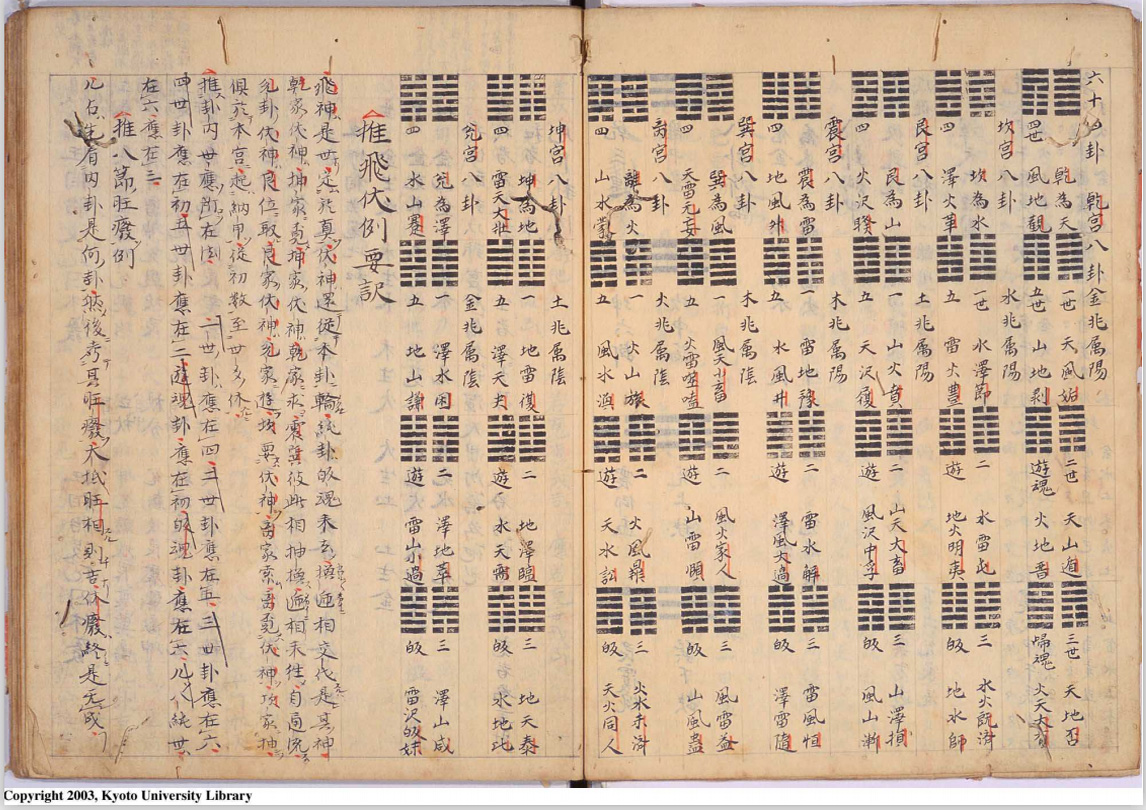 六十四卦 乾宮八卦金兆属陽
乾為天 一世 天風姤 二世 天山遁 三世 天地否
四世 風地観 五世 山地剥 遊魂 火地晋 帰魂 火天大有
坎宮八卦 水兆属陽
坎為水 一世 水澤節 二 水雷屯 三 水火既済
四 澤火革 五 雷火豊 遊 地火明夷 皈 地水師
艮宮八卦 土兆属陽
艮為山 一 山火賁 二 山天大畜 三 山澤損
四 火沢睽 五 天沢履 遊 風沢中孚 皈 風山漸
震宮八卦 木兆属陽
震為雷 一 雷地豫 二 雷水解 三 雷風恒
四 地風升 五 水風井 遊 澤風大過 皈 澤雷随
巽宮八卦 木兆属陰
巽為風 一 風天小畜 二 風火家人 三 風雷益
四 天雷无妄 五 火雷噬嗑 遊 山雷頤 皈 山風蠱
离宮八卦 火兆属陰
離為火 一 火山旅 二 火風鼎 三 火水未済
四 山水蒙 五 風水渙 遊 天水訟 皈 天火同人
坤宮八卦 土兆属陰
坤為地 一 地雷復 二 地澤臨 三 地天泰
四 雷天大壮 五 澤天夬 遊 水天需 皈 水地比
兌宮八卦 金兆属陰
兌為澤 一 澤水困 二 澤地萃 三 澤山咸
四 水山蹇 五 地山謙 遊 雷山小過 皈 雷沢皈妹
推飛伏例要訳
飛神是世定於真伏神還從本卦輪統卦皈魂来去換遍相交代是其神
乾家伏神坤家覓坤家伏神乾家求震巽彼此相抽換遍相来往自通流
兌卦伏神艮位取艮家伏神兌家進坎要伏神离家索离覓伏神坎家抽
俱於本宮起納甲從初数至世爻休
推卦内世應所在例 一世卦應在四二世卦應在五三世卦應在六
四世卦應在初五世卦應在二遊魂卦應在初皈魂卦應在六八純世
在六應在三
推八節旺癈例
凡占先看内卦是何卦然後考其旺癈大抵旺相則吉休癈終是无成
Copyright 2003, Kyoto University Library